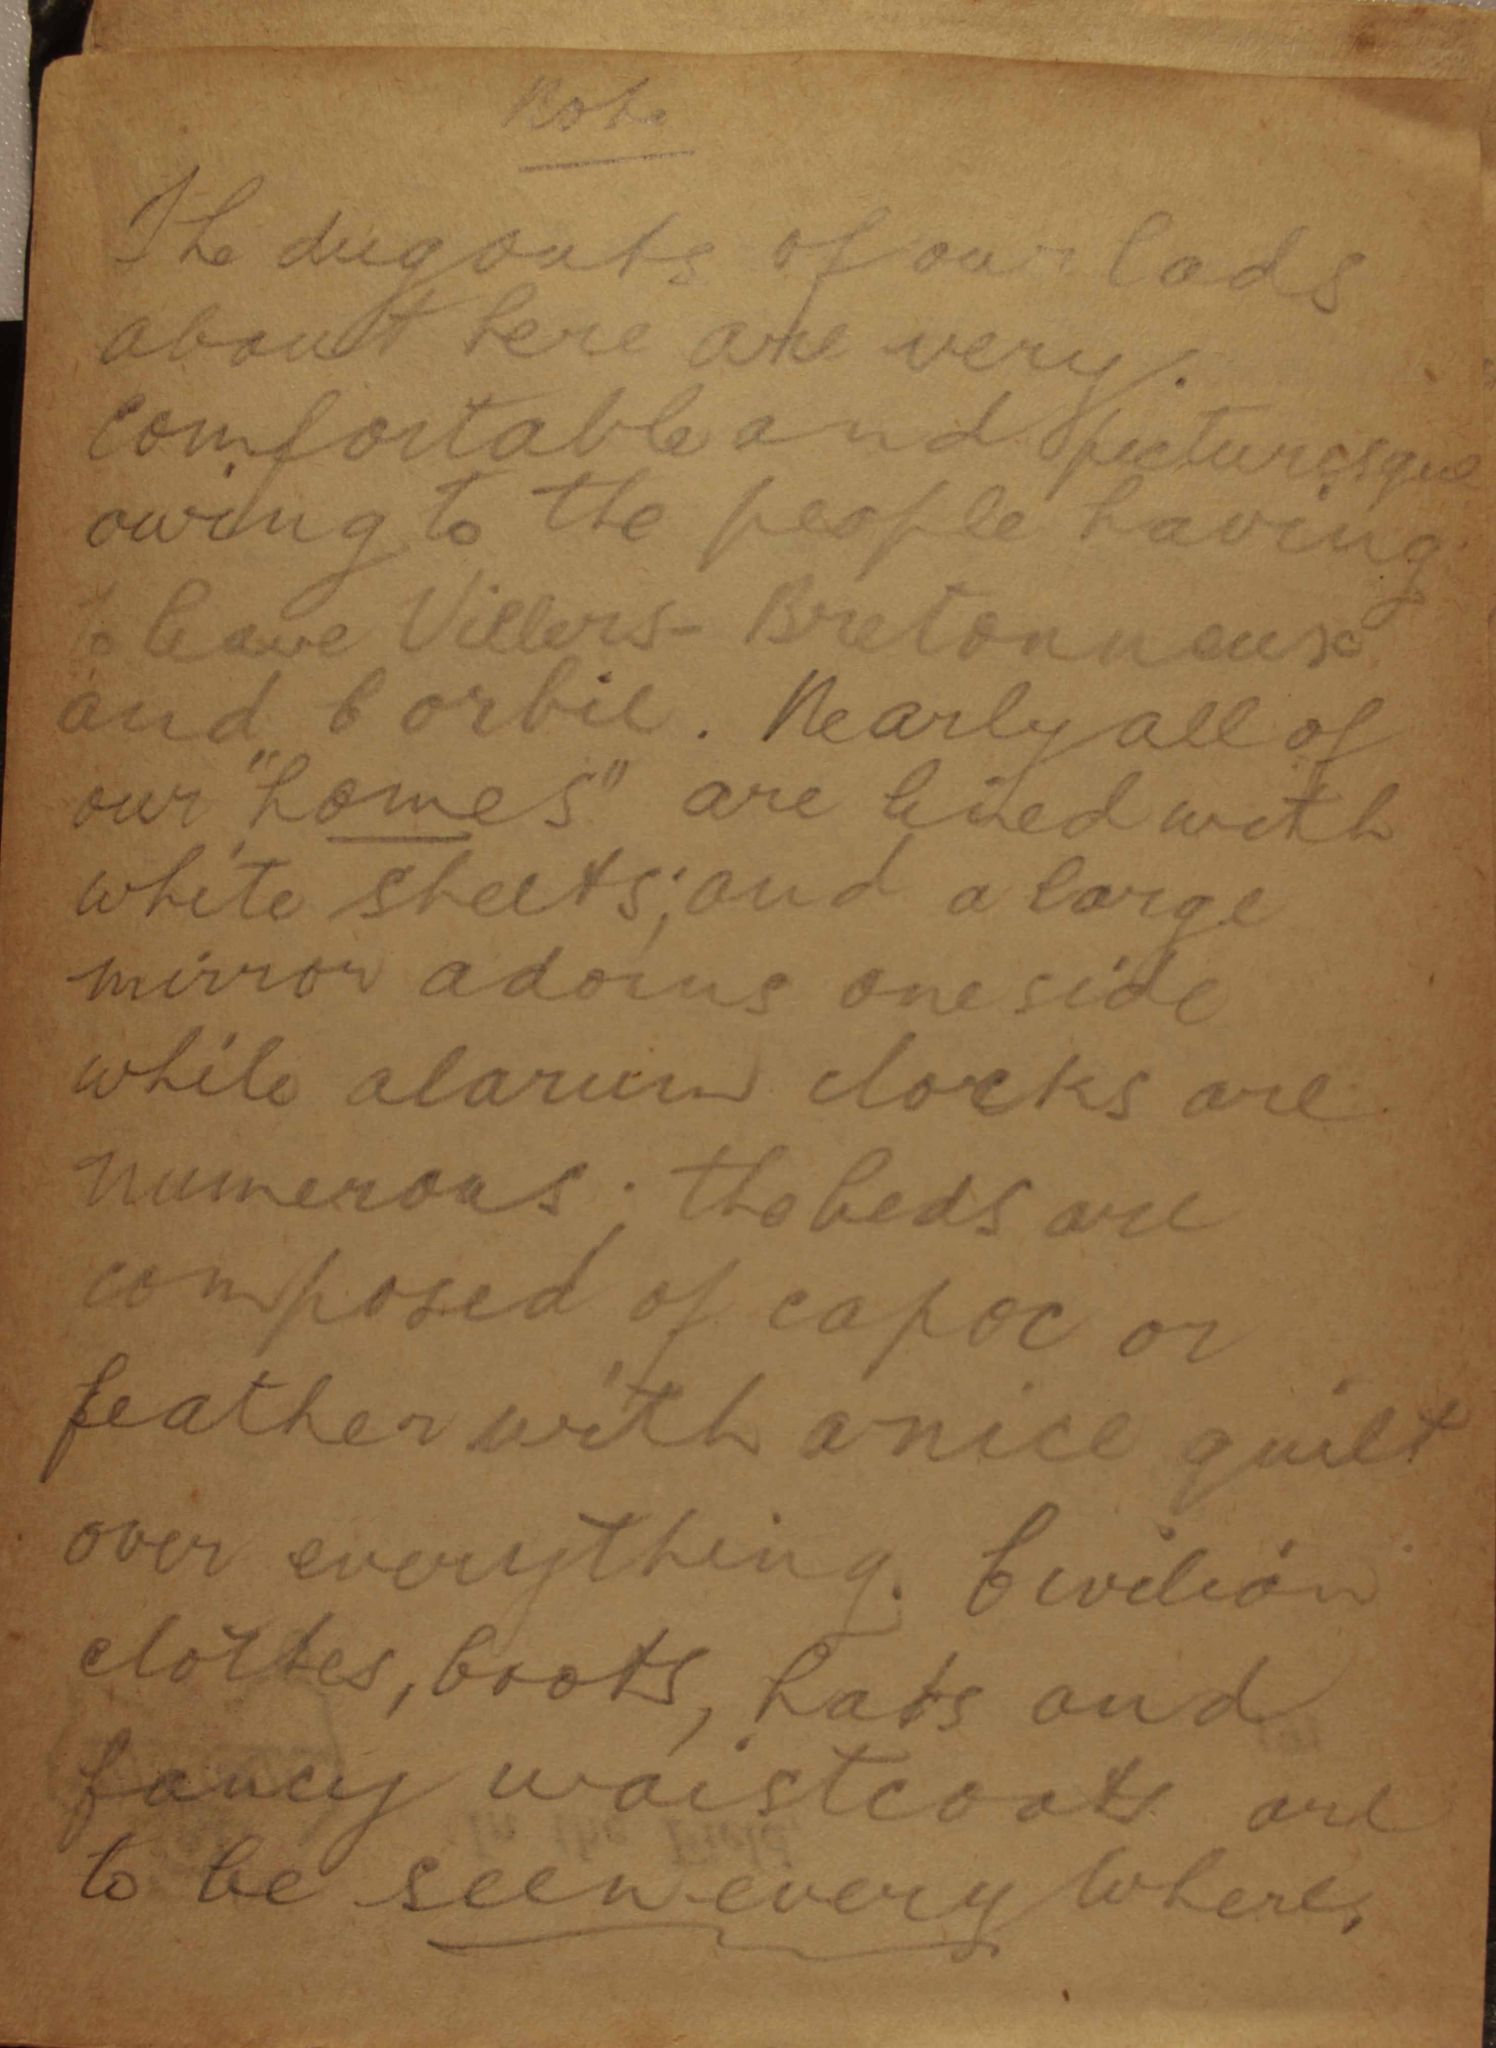 Note
The dugouts of our lads
about here are very.
comfortable and picturesque
owing to the people having
to leave Villers-Bretonneux
and Corbie. Nearly all of
our "homes" are lined with
white sheets; and a large
mirror adorns one side
while alarum clocks are
numerous; the beds are
composed of capoc or
feather with a nice quilt
over everything. Civilian
clothes, boots, hats and
fancy waistcoats are
to be seen every where,